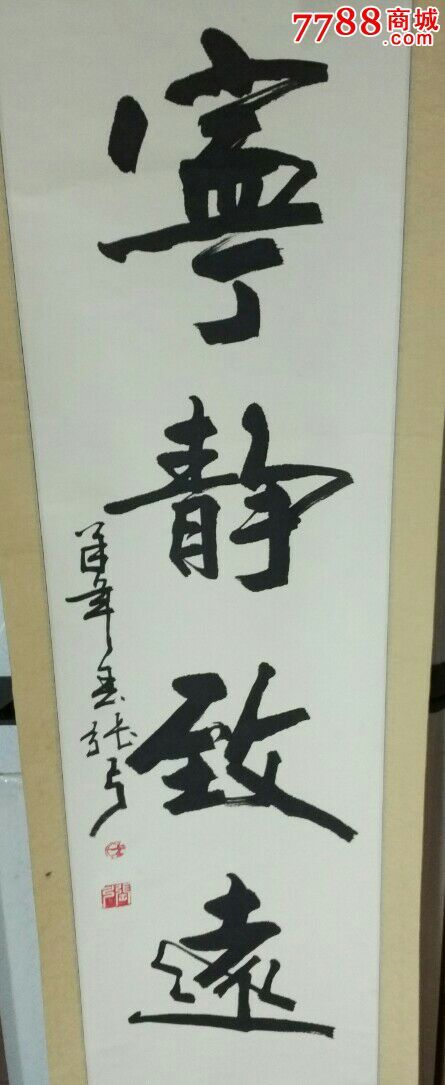 7788商城
.com
寧靜致遠
年春張弓